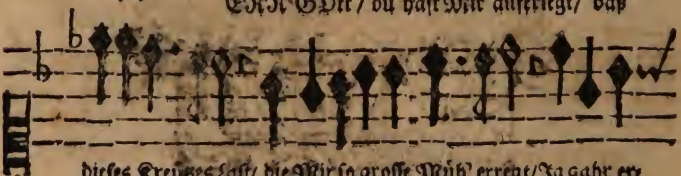 HERR GOtt / du hast Mir auferlegt / daß
dieses Kreutzes Last / die Mir so grosse Müh' erregt / Ja gahr er-